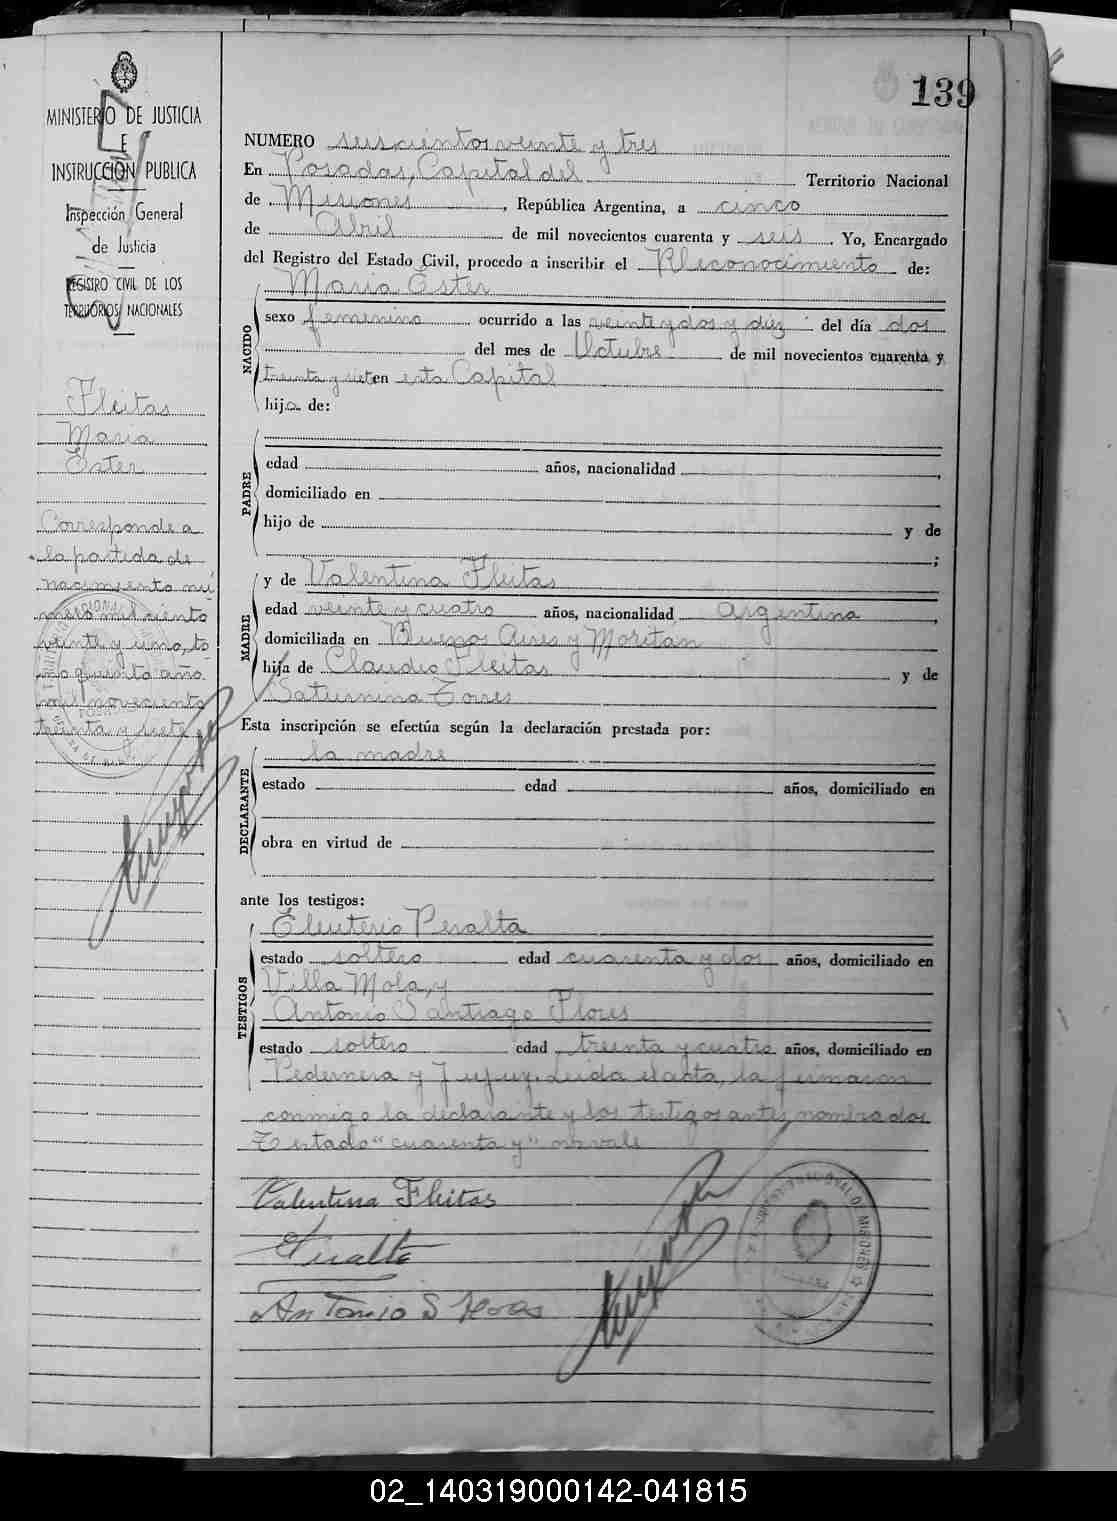 139
MINISTERIO DE JUSTICIA
E
INSTRUCCION PUBLICA
Inspección General
de Justicia
REGISTRO CIVIL DE LOS
TERRITORIOS NACIONALES
Fleitas
Maria
Ester
Corresponde a
la partida de
nacimiento nú
mero mil ciento
veinte y uno, to
mo quinto año
mil noveciento
treinta y siete
NUMERO seiscientos veinte y tres
En Posadas, Capital del Territorio Nacional
de Misiones, República Argentina, a cinco
de Abril de mil novecientos cuarenta y seis. Yo, Encargado
del Registro del Estado Civil, procedo a inscribir el Reconocimiento de:
Maria Ester
NACIDO
sexo femenino ocurrido a las veinte y dos y diez del día dos
del mes de Octubre de mil novecientos cuarenta y
treinta y siete en esta Capital
hija de:
PADRE
edad años, nacionalidad ,
domiciliado en
hijo de y de
;
y de Valentina Fleitas
MADRE
edad veinte y cuatro años, nacionalidad Argentina,
domiciliada en Buenos Aires y Moritan
hija de Claudio Fleitas y de
Saturnina Torres
Esta inscripción se efectúa según la declaración prestada por:
la madre
DECLARANTE
estado edad años, domiciliado en
obra en virtud de
ante los testigos:
Eleuterio Peralta
TESTIGOS
estado soltero edad cuarenta y dos años, domiciliado en
Villa Mola, y
Antonio Santiago Flores
estado soltero edad treinta y cuatro años, domiciliado en
Pedernera y Jujuy. Leida el acta, la firmaron
conmigo la declarante y los testigos antes nombrados
Testado "cuarenta y" no vale
Valentina Fleitas
Peralta
Antonio S Flores
02_140319000142-041815